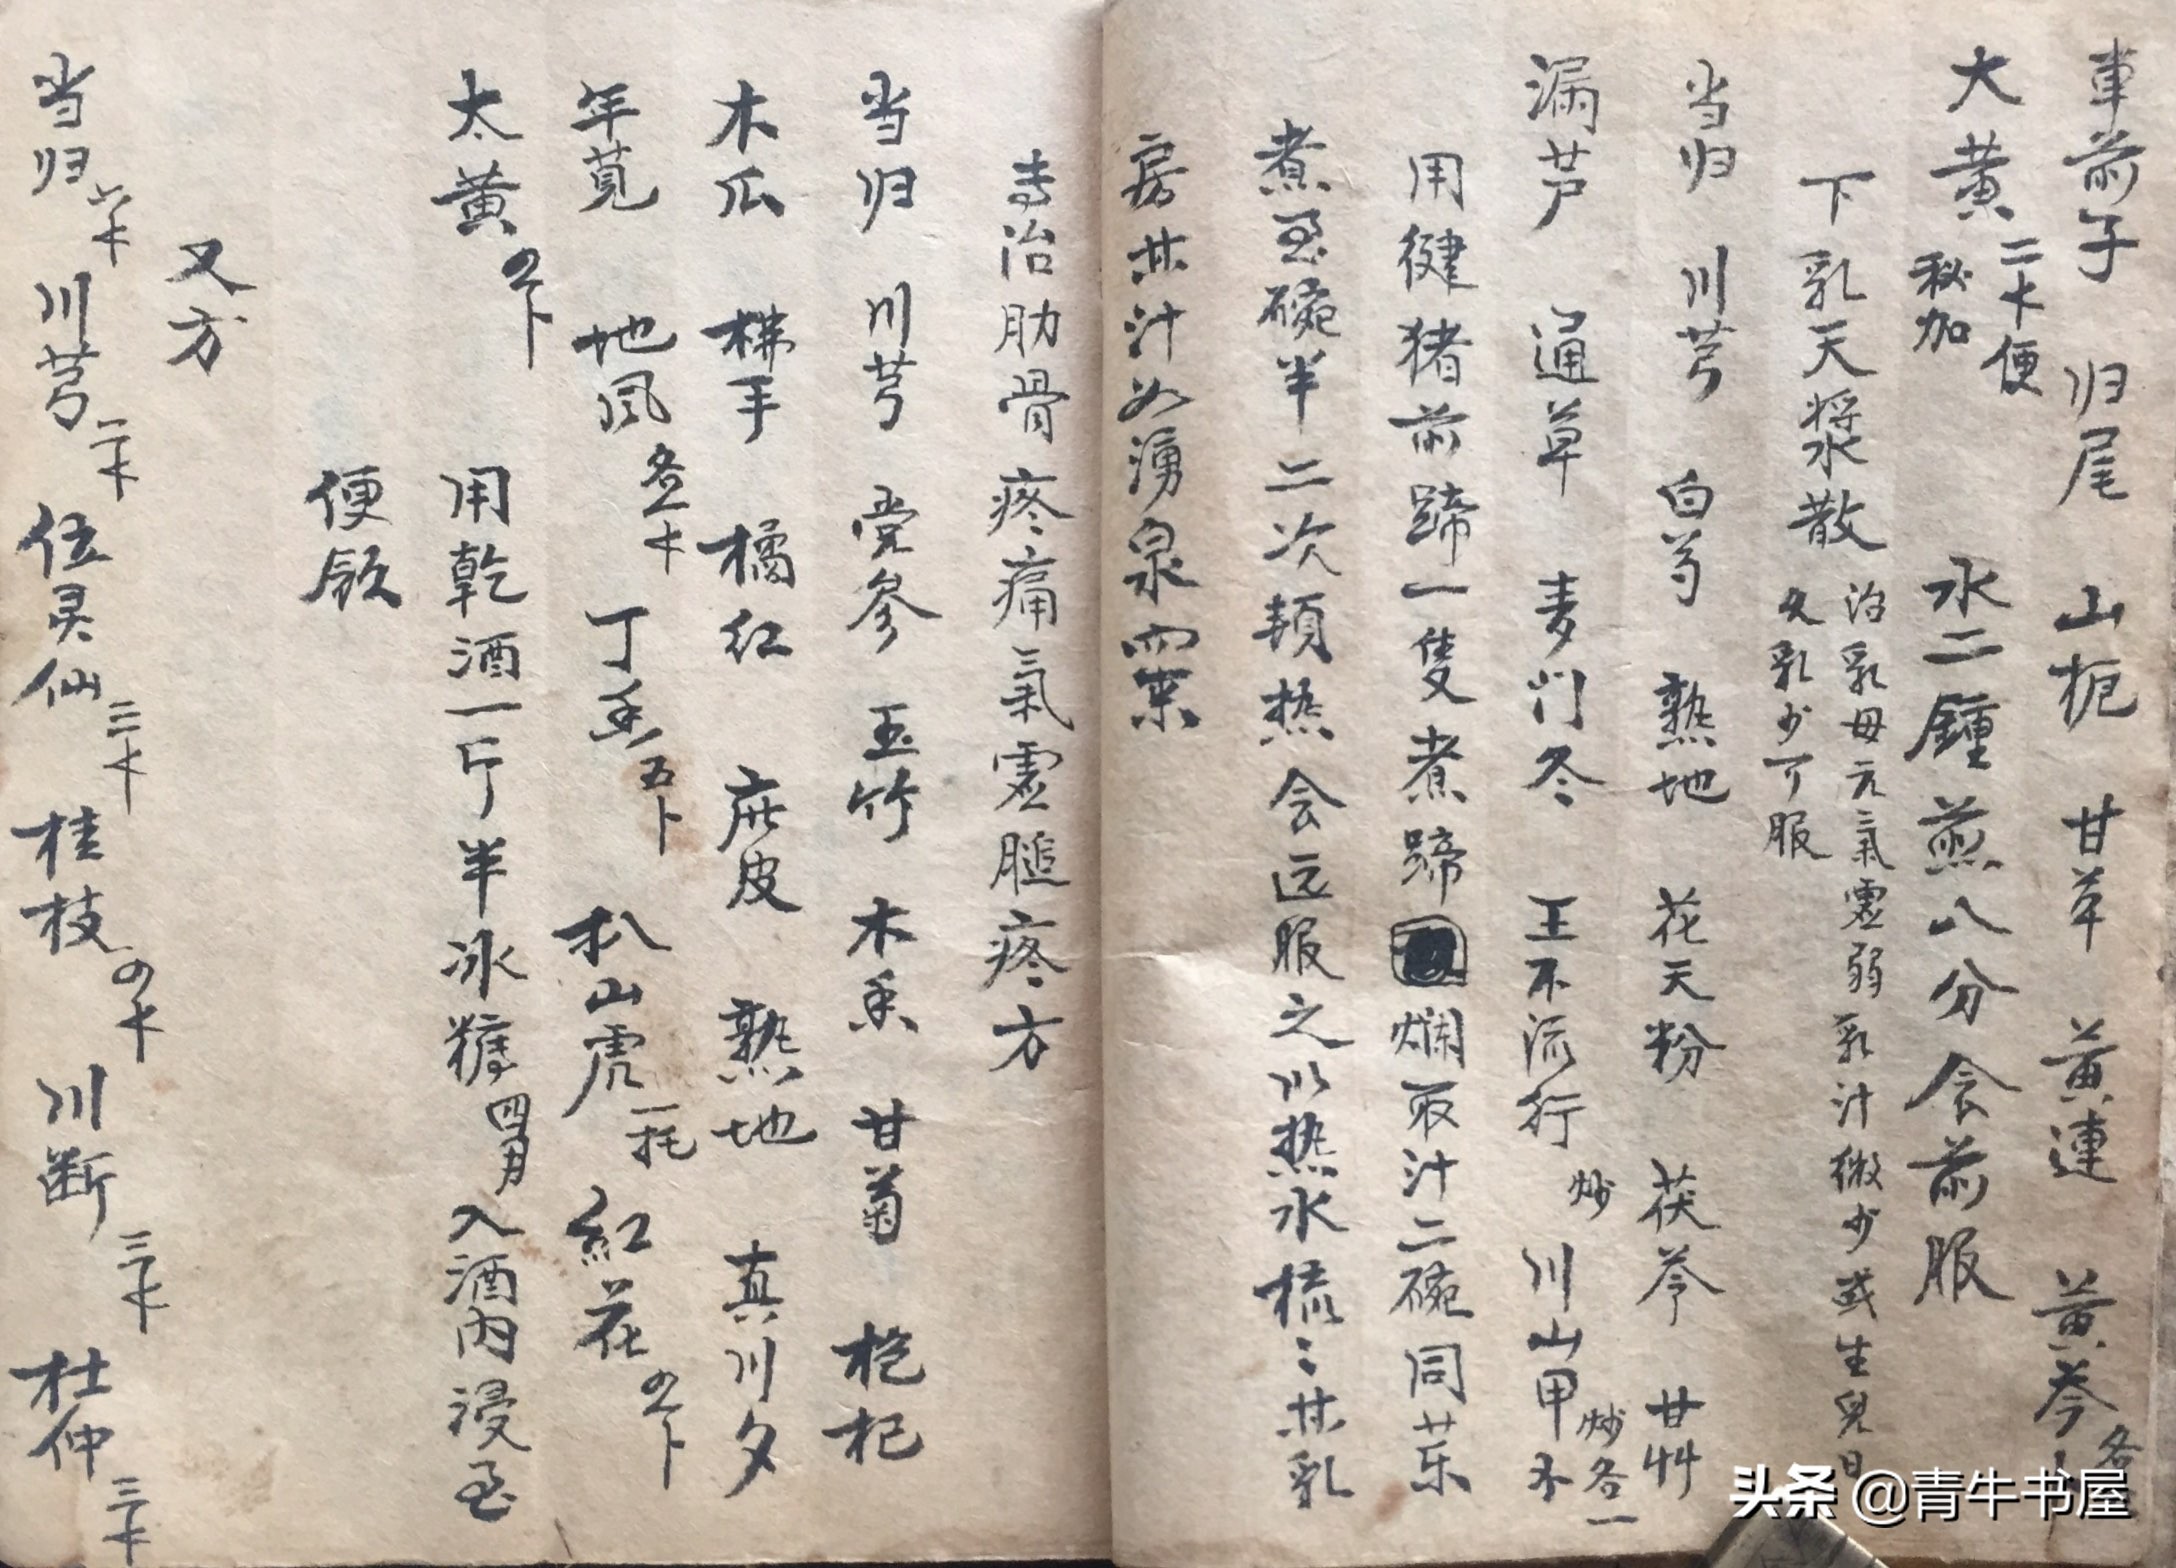 車前子 归尾 山枙 甘草 黃連 黃芩 各
大黃 二十 便秘加 水二鍾煎八分食前服
下乳天漿散 治乳母元氣虛弱乳汁微少或生兒日久乳少可服
当归 川芎 白芍 熟地 花天粉 茯苓 甘艸
漏芦 通草 麦门冬 王不流行 炒 川山甲 炒 各一
用健猪前蹄一隻煮蹄爛取汁二碗同药
煮至碗半二次頓热食远服之以热水梳〻其乳
房其汁如湧泉而來
专治肋骨疼痛氣虛腿疼方
当归 川芎 党參 玉竹 木香 甘菊 枸杞
木瓜 拂手 橘红 庇皮 熟地 真川夕
年莧 地风 各二十 丁香 五卜 扒山虎 一托 紅花
太黃 用乾酒一斤半冰糖四两入酒內浸至
便飲
又方
当归 川芎 二十 伍灵仙 三十 桂枝 川断 三十 杜仲 三十
头条 @青牛书屋